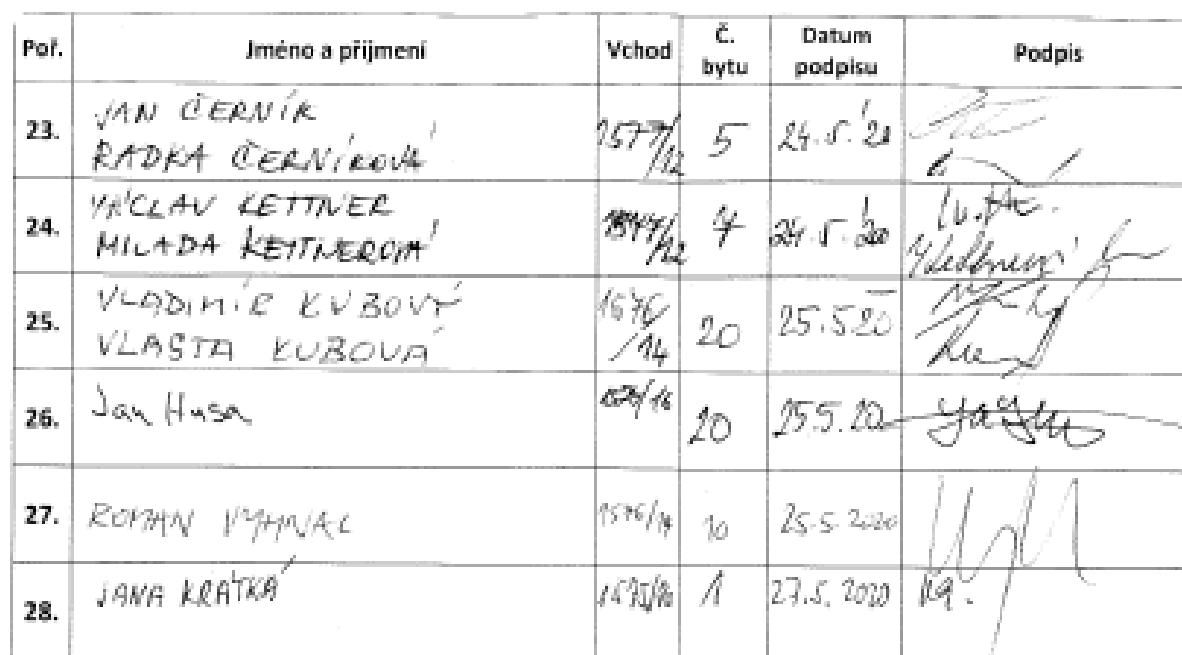 Poř. Jméno a příjmení Vchod Č. bytu Datum podpisu Podpis
23. JAN ČERNÍK
RADKA ČERNÍKOVÁ 1577/12 5 24.5.'20
24. VÁCLAV KETTNER
MILADA KETTNEROVÁ 7 24.5.'20
25. VLADIMÍR KUBOVÝ
VLASTA KUBOVÁ 1576/14 20 25.5.20
26. Jan Husa 20 25.5.20
27. ROMAN VYHNAL 1576/14 10 25.5.2020
28. JANA KRÁTKÁ 1 27.5.2020